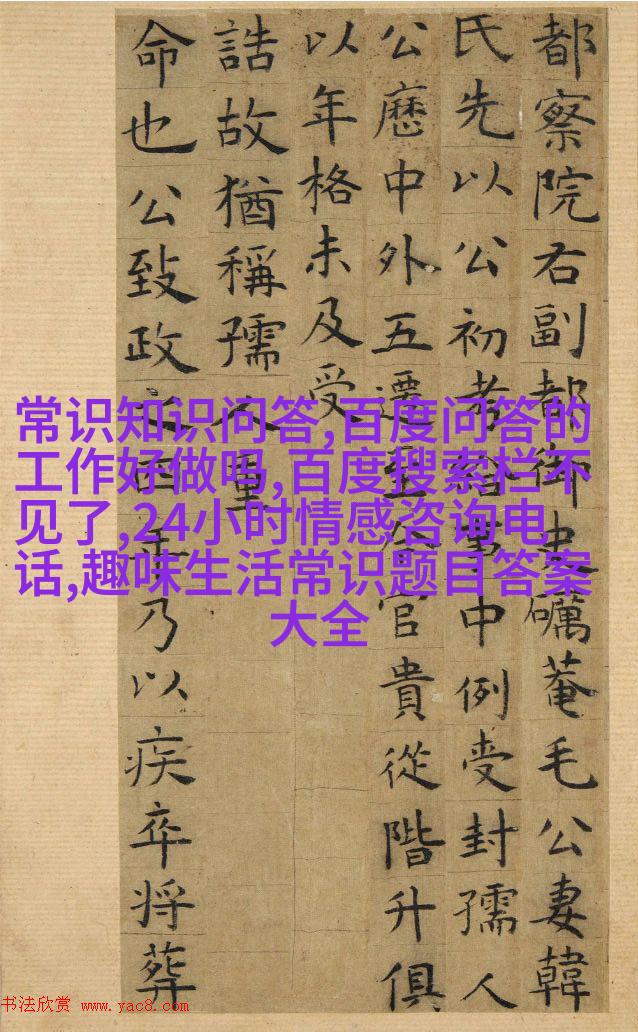 都察院右副都御史礪菴毛公妻韓
氏先以公初考給事中例受封孺人
公歷中外五遷至今官貴從階升俱
以年格未及受
誥故猶稱孺人重
命也公致政之四年乃以疾卒將葬
常识知识问答,百度问答的
工作好做吗,百度搜索栏不
见了,24小时情感咨询电
话,趣味生活常识题目答案
大全
书法欣赏 www.yac8.com